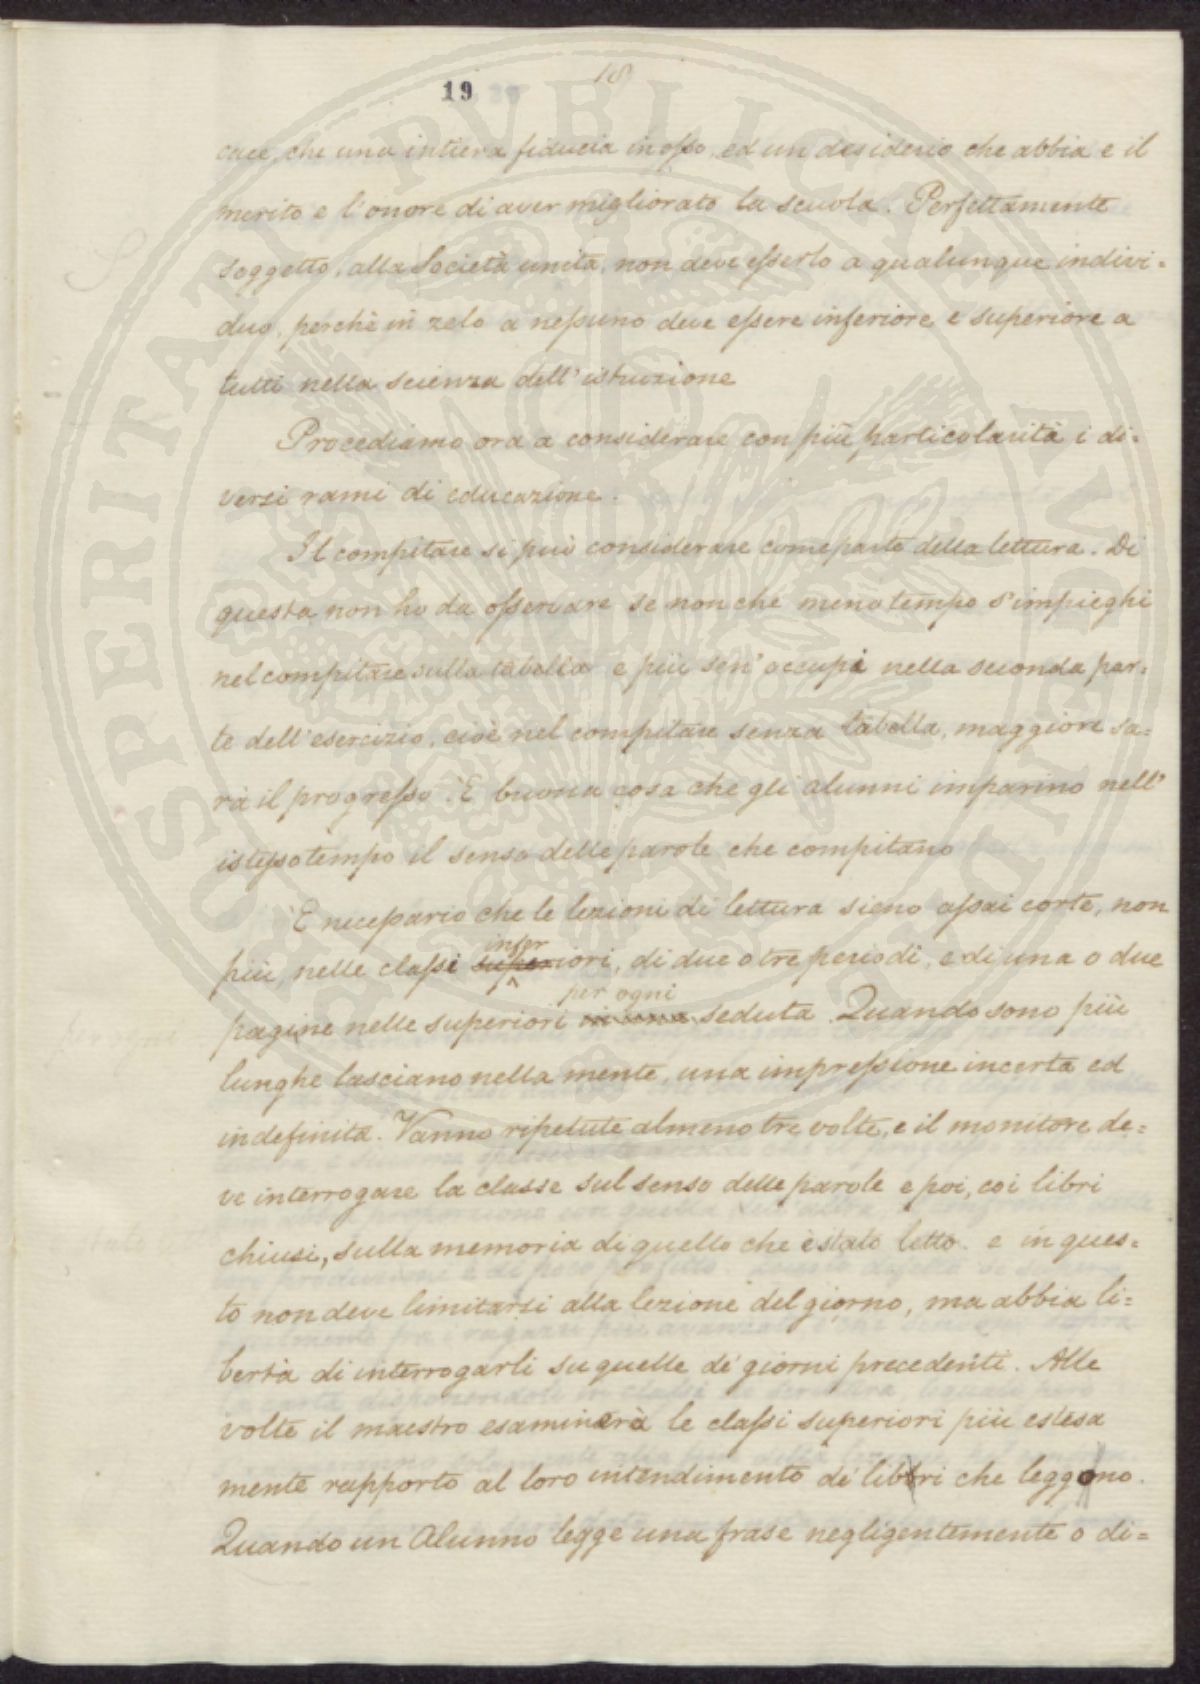 18
19
cace, che una intiera fiducia in esso, ed un desiderio che abbia e il
merito e l'onore di aver migliorato la scuola. Perfettamente
soggetto, alla Società unita, non deve esserlo a qualunque indivi=
duo, perchè in zelo a nessuno deve essere inferiore e superiore a
tutti nella scienza dell'istruzione
Procediamo ora a considerare con più particolarità i di=
versi rami di educazione.
Il compitare si può considerare come parte della lettura. Di
questa non ho da osservare se non che meno tempo s'impieghi
nel compitare sulla tabella e più sen' occupi nella seconda par=
te dell'esercizio, cioè nel compitare senza tabella, maggiore sa=
rà il progresso. È buona cosa che gli alunni imparino nell'
istesso tempo il senso delle parole che compitano
È necessario che le lezioni di lettura sieno assai corte, non
infer
più, nelle classi superiori, di due o tre periodi, e di una o due
per ogni
pagine nelle superiori in una seduta. Quando sono più
lunghe lasciano nella mente, una impressione incerta ed
indefinita. Vanno ripetute almeno tre volte, e il monitore de=
ve interrogare la classe sul senso delle parole e poi, coi libri
chiusi, sulla memoria di quello che è stato letto. e in ques=
to non deve limitarsi alla lezione del giorno, ma abbia li=
bertà di interrogarli su quelle de' giorni precedenti. Alle
volte il maestro esaminerà le classi superiori più estesa
mente rapporto al loro intendimento de' libri che leggono.
Quando un Alunno legge una frase negligentemente o di=
per ogni
SPERITATI PVBLICAE AVGENDAE